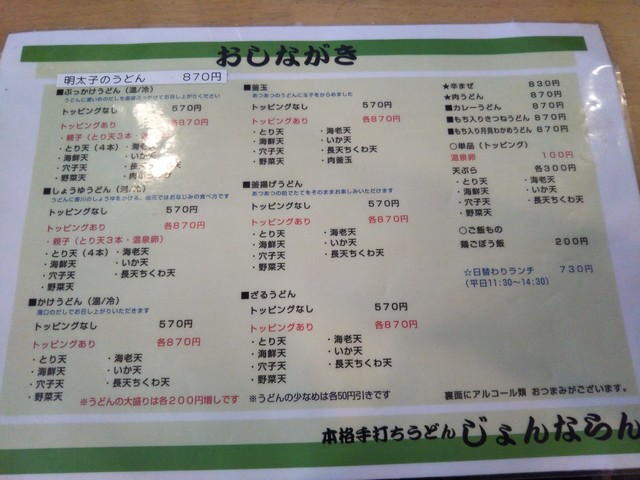 おしながき
明太子のうどん 870円
■ぶっかけうどん（温/冷）
トッピングなし 570円
トッピングあり 各870円
・親子（とり天3本・
・とり天（4本）・海老
・海鮮天 ・いか
・穴子天 ・長天
・野菜天 ・肉
■しょうゆうどん（温/冷）
うどんに香川のしょうゆをかける、地元ではおなじみの食べ方です
トッピングなし 570円
トッピングあり 各870円
・親子（とり天3本・温泉卵）
・とり天（4本）・海老天
・海鮮天 ・いか天
・穴子天 ・長天ちくわ天
・野菜天
■かけうどん（温/冷）
トッピングなし 570円
トッピングあり 各870円
・とり天 ・海老天
・海鮮天 ・いか天
・穴子天 ・長天ちくわ天
・野菜天
※うどんの大盛りは各200円増しです
■釜玉
あつあつのうどんに玉子をからめました
トッピングなし 570円
トッピングあり 各870円
・とり天 ・海老天
・海鮮天 ・いか天
・穴子天 ・長天ちくわ天
・野菜天 ・肉釜玉
■釜揚げうどん
あつあつの茹でたてをそのままお楽しみいただけます
トッピングなし 570円
トッピングあり 各870円
・とり天 ・海老天
・海鮮天 ・いか天
・穴子天 ・長天ちくわ天
・野菜天
■ざるうどん
トッピングなし 570円
トッピングあり 各870円
・とり天 ・海老天
・海鮮天 ・いか天
・穴子天 ・長天ちくわ天
・野菜天
※うどんの少なめは各50円引きです
★辛まぜ 830円
★肉うどん 870円
■カレーうどん 870円
■もち入りきつねうどん 870円
■もち入り月見わかめうどん 870円
○単品（トッピング）
温泉卵 100円
天ぷら 各300円
・とり天 ・海老天
・海鮮天 ・いか天
・穴子天 ・長天ちくわ天
・野菜天
○ご飯もの
鶏ごぼう飯 200円
☆日替わりランチ 730円
（平日11:30～14:30）
裏面にアルコール類 おつまみがございます。
本格手打ちうどん じょんならん